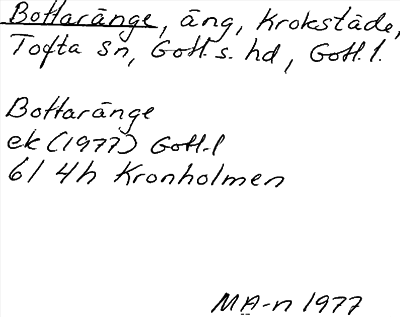 Bottaränge, äng, Krokstäde,
Tofta sn, Gotl. s. hd, Gotl. l.
Bottaränge
ek (1977) Gotl. l
6I 4h Kronholmen
MÄ-n 1977